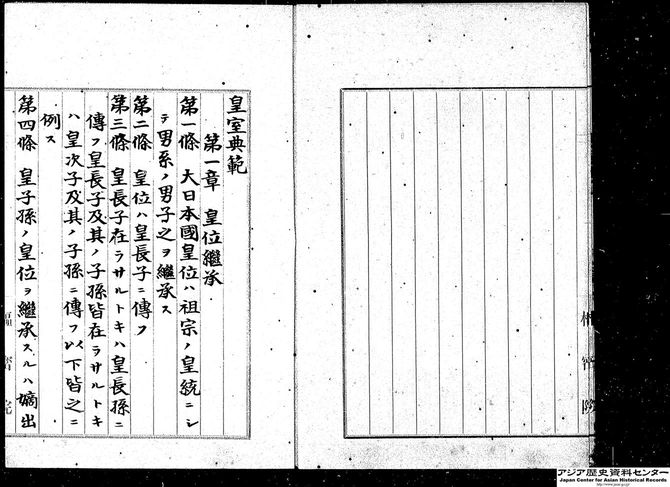 皇室典範
第一章 皇位繼承
第一條 大日本國皇位ハ祖宗ノ皇統ニシ
テ男系ノ男子之ヲ繼承ス
第二條 皇位ハ皇長子ニ傳フ
第三條 皇長子在ラサルトキハ皇長孫ニ
傳フ皇長子及其ノ子孫皆在ラサルトキ
ハ皇次子及其ノ子孫ニ傳フ以下皆之ニ
例ス
第四條 皇子孫ノ皇位ヲ繼承スルハ嫡出
樞密院
アジア歴史資料センター
Japan Center for Asian Historical Records
http://www.jacar.go.jp/